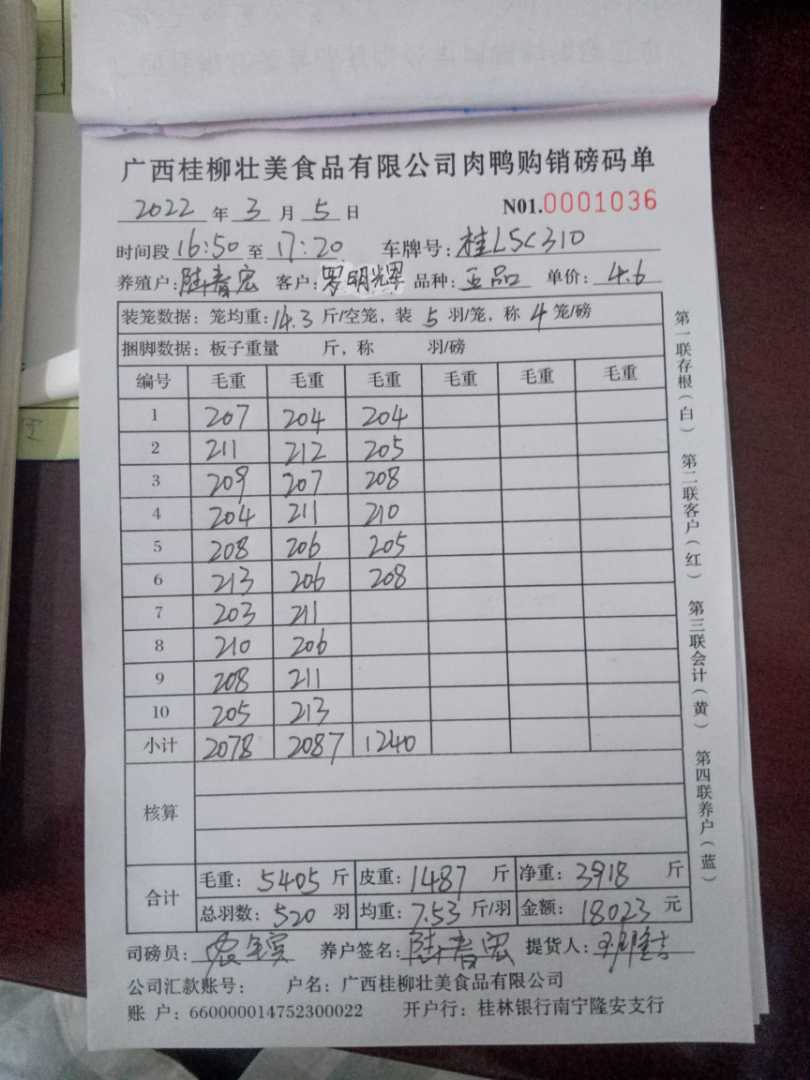 广西桂柳壮美食品有限公司肉鸭购销磅码单
2022 年 3 月 5 日 N01.0001036
时间段 16:50 至 17:20 车牌号: 桂L5C310
养殖户: 陆春宏 客户: 罗明辉 品种: 正品 单价: 4.6
装笼数据: 笼均重: 14.3 斤/空笼, 装 5 羽/笼, 称 4 笼/磅
捆脚数据: 板子重量 斤, 称 羽/磅
编号 毛重 毛重 毛重 毛重 毛重 毛重
1 207 204 204
2 211 212 205
3 209 207 208
4 204 211 210
5 208 206 205
6 213 206 208
7 203 211
8 210 206
9 208 211
10 205 213
小计 2078 2087 1240
核算
合计
毛重: 5405 斤 皮重: 1487 斤 净重: 3918 斤
总羽数: 520 羽 均重: 7.53 斤/羽 金额: 18023 元
司磅员: 养户签名: 陆春宏 提货人:
公司汇款账号: 户名: 广西桂柳壮美食品有限公司
账 户: 660000014752300022 开户行: 桂林银行南宁隆安支行
第一联存根(白) 第二联客户(红) 第三联会计(黄) 第四联养户(蓝)